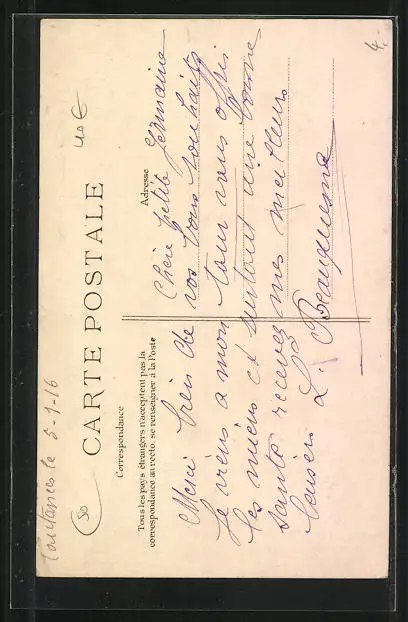 Coutances le 5-1-16
50
40€
4.-
CARTE POSTALE
Correspondance
Adresse
Tous les pays étrangers n'acceptent pas la
correspondance au recto, se renseigner à la Poste
Chère petite Germaine
Merci bien de vos bons souhaits
Je viens a mon tour vous offrir
les miens et surtout une bonne
santé recevez mes meilleurs
baisers L. Beauquesne